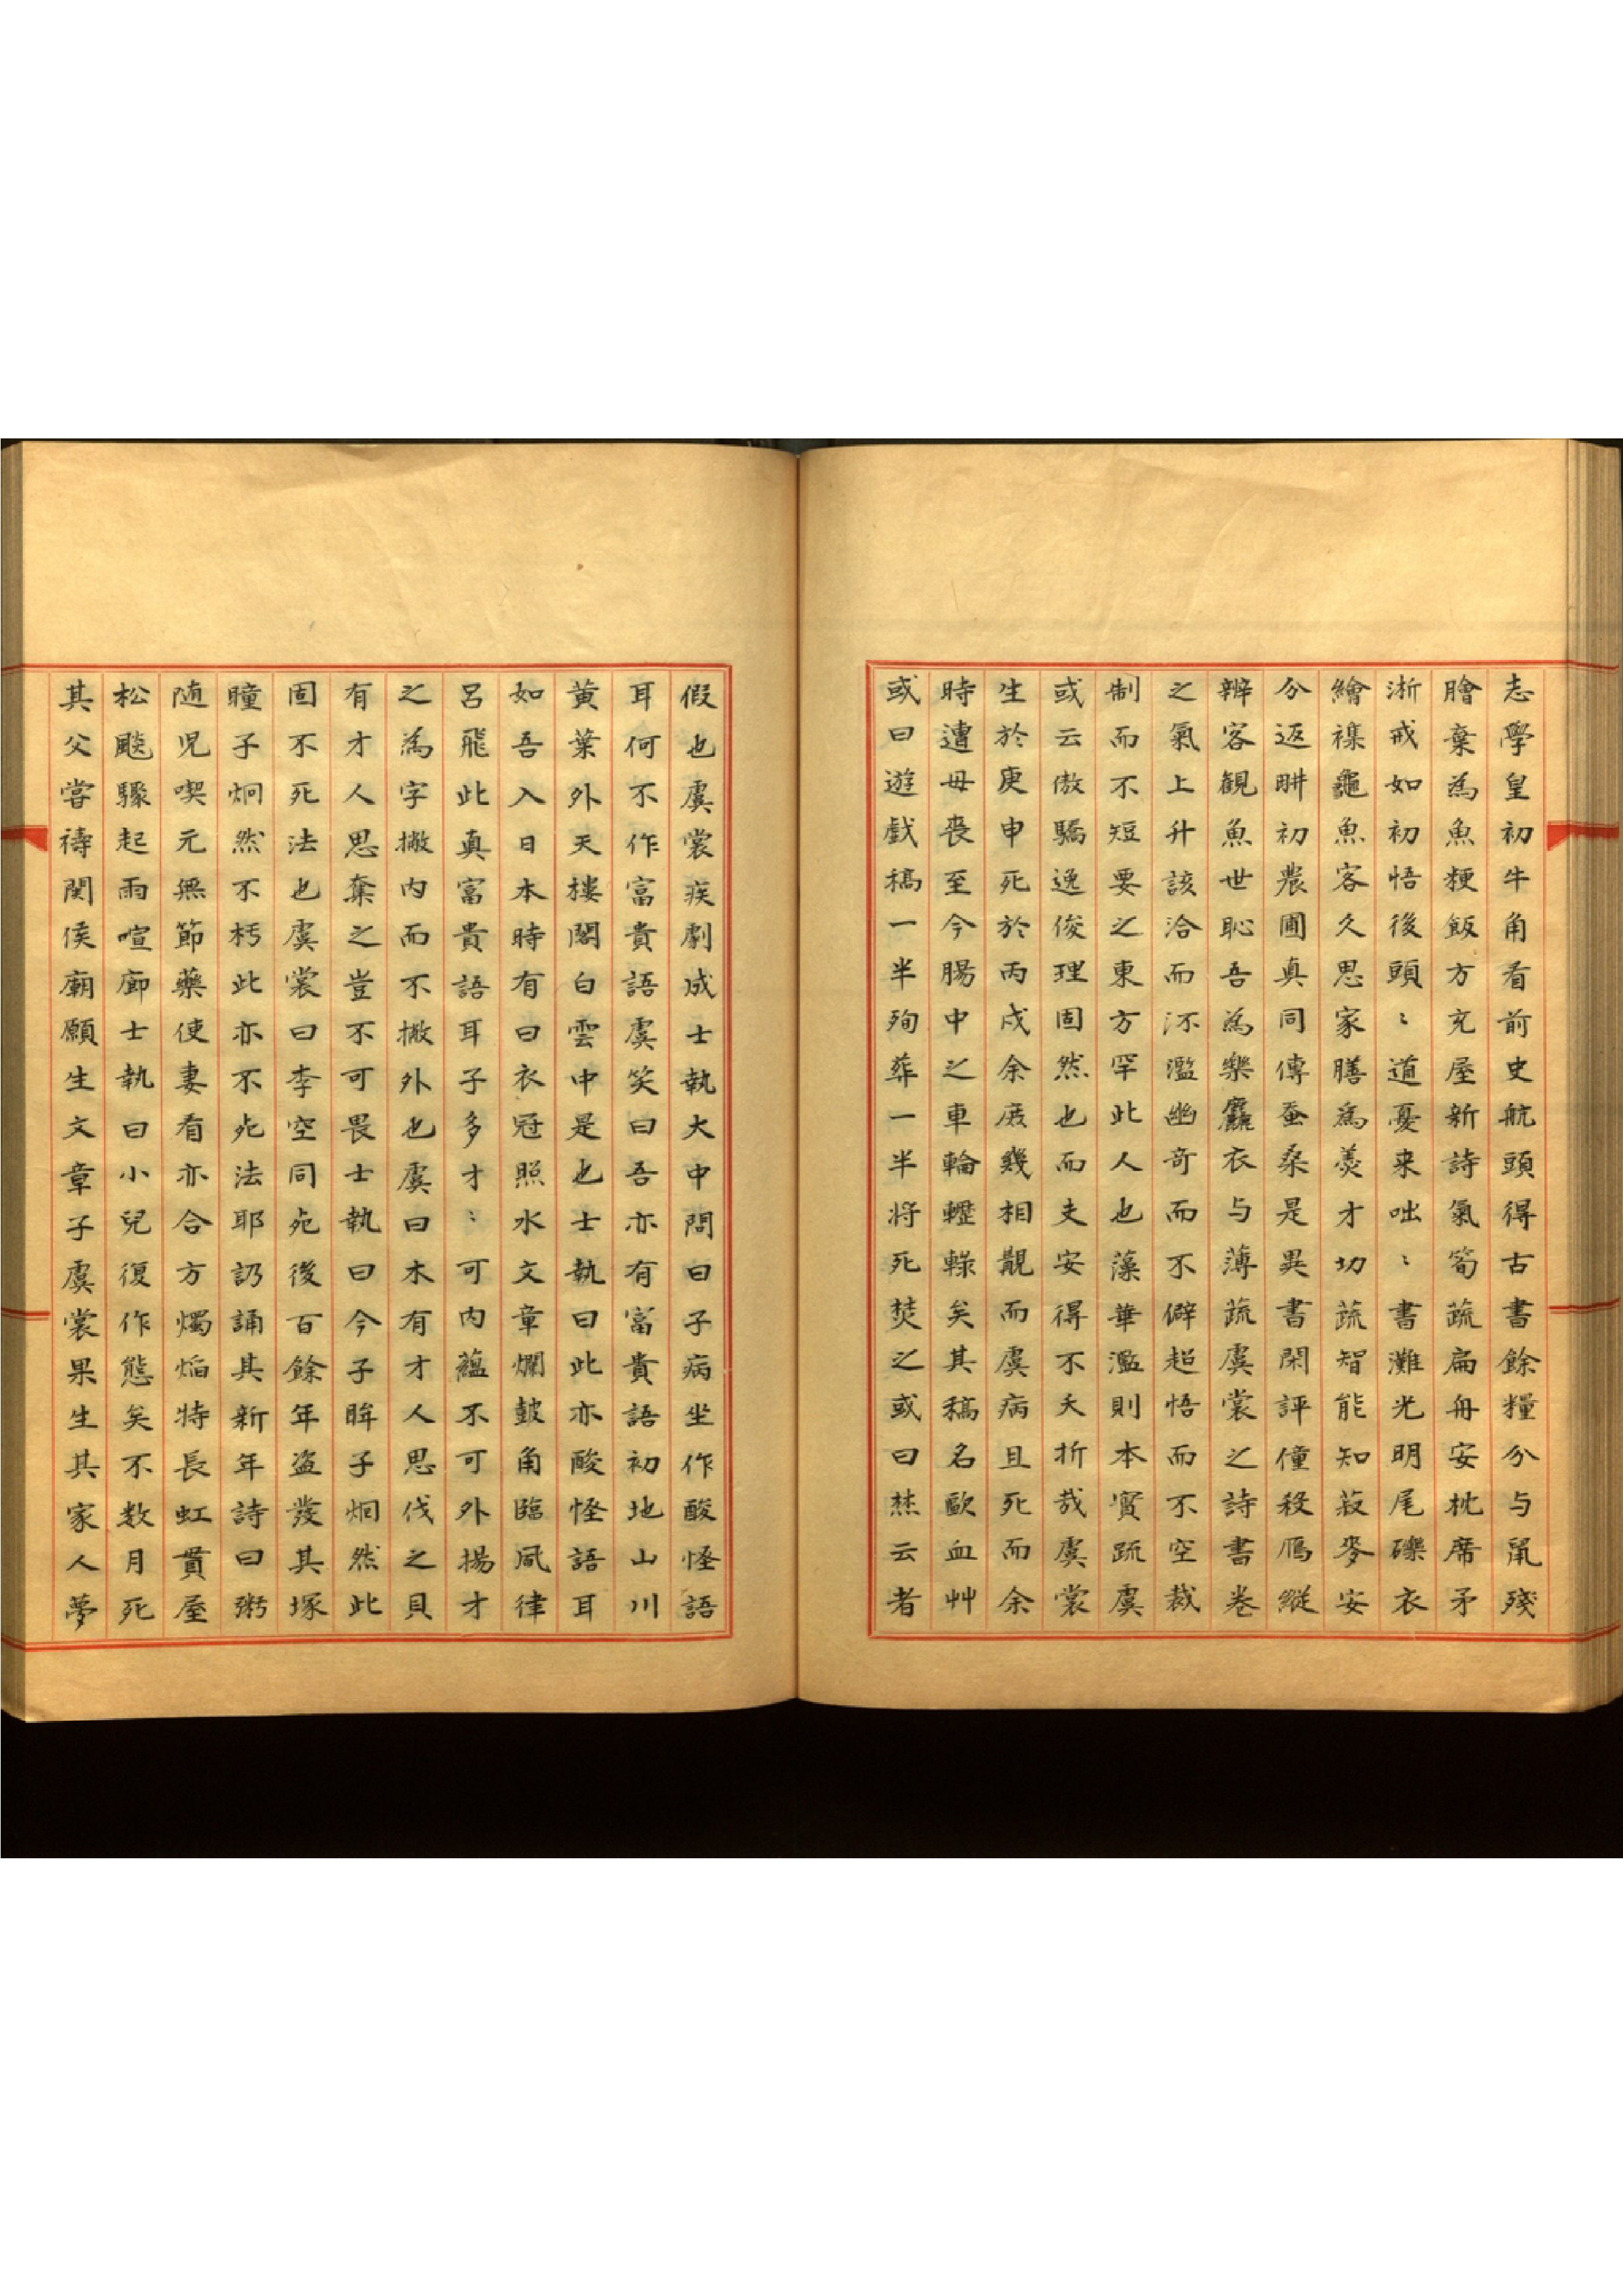 志學皇初牛角看前史航頭得古書餘糧分与鼠殘
膾棄為魚粳飯方充屋新詩氣筍蔬扁舟安枕席矛
淅戒如初悟後頭〻道憂来咄〻書灘光明尾礫衣
繪襍龜魚客久思家膳為羹才切蔬智能知菽麥安
分返畊初農圃真同傳蚕桑是異書閑評僮殺鴈縱
辨客觀魚世恥吾為樂麤衣与薄蔬虞裳之詩書卷
之氣上升該洽而不濫幽奇而不僻超悟而不空裁
制而不短要之東方罕此人也藻華濫則本實疏虞
或云傲驕逸俊理固然也而夫安得不夭折哉虞裳
生於庚申死於丙戌余庻幾相覯而虞病且死而余
時遭母喪至今腸中之車輪轣轆矣其稿名歐血艸
或曰遊戲稿一半殉葬一半将死焚之或曰焚云者
假也虞裳疾劇成士執大中問曰子病坐作酸怪語
耳何不作富貴語虞笑曰吾亦有富貴語初地山川
黄葉外天樓閣白雲中是也士執曰此亦酸怪語耳
如吾入日本時有曰衣冠照水文章爛鼓角臨風律
呂飛此真富貴語耳子多才〻可内蘊不可外揚才
之為字撇内而不撇外也虞曰木有才人思伐之貝
有才人思奪之豈不可畏士執曰今子眸子炯然此
固不死法也虞裳曰李空同死後百餘年盜發其塚
瞳子炯然不朽此亦不死法耶訒誦其新年詩曰粥
随児喫元無節藥使妻看亦合方燭焰特長虹貫屋
松颷驟起雨喧廊士執曰小兒復作態矣不数月死
其父嘗禱関侯廟願生文章子虞裳果生其家人夢